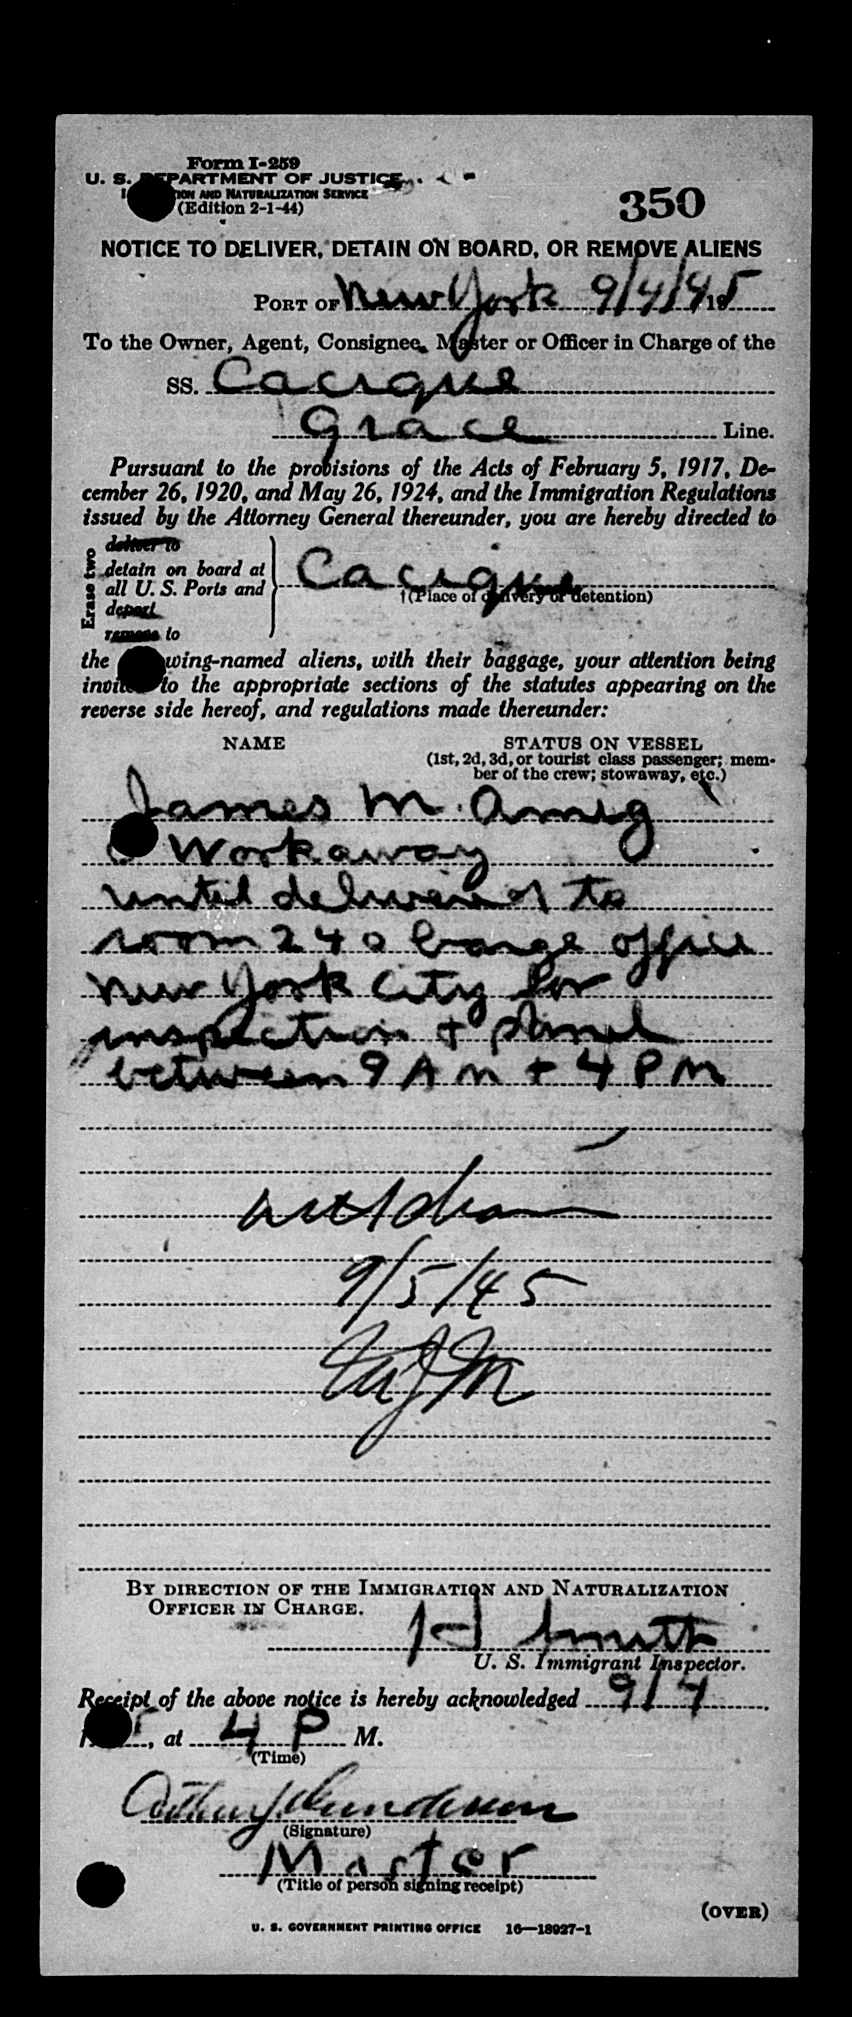 Form I-259
U. S. DEPARTMENT OF JUSTICE
AND NATURALIZATION SERVICE
(Edition 2-1-44)
350
NOTICE TO DELIVER, DETAIN ON BOARD, OR REMOVE ALIENS
PORT OF New York 9/4/45
To the Owner, Agent, Consignee, Master or Officer in Charge of the
SS. Cacique
Grace Line.
Pursuant to the provisions of the Acts of February 5, 1917, De-
cember 26, 1920, and May 26, 1924, and the Immigration Regulations
issued by the Attorney General thereunder, you are hereby directed to
Erase two
deliver to
detain on board at
all U. S. Ports and
depart
remove to
Cacique
†(Place of delivery or detention)
the wing-named aliens, with their baggage, your attention being
invited to the appropriate sections of the statutes appearing on the
reverse side hereof, and regulations made thereunder:
NAME STATUS ON VESSEL
(1st, 2d, 3d, or tourist class passenger; mem-
ber of the crew; stowaway, etc.)
James M. Amig
Workaway
until delivered to
room 240 barge office
New York City for
inspection +
between 9 AM + 4 PM
9/5/45
BY DIRECTION OF THE IMMIGRATION AND NATURALIZATION
OFFICER IN CHARGE.
H Smith
U. S. Immigrant Inspector.
Receipt of the above notice is hereby acknowledged 9/4
, at 4 P M.
(Time)
Arthur J Gundersen
(Signature)
Master
(Title of person signing receipt)
(OVER)
U. S. GOVERNMENT PRINTING OFFICE 16—18927-1